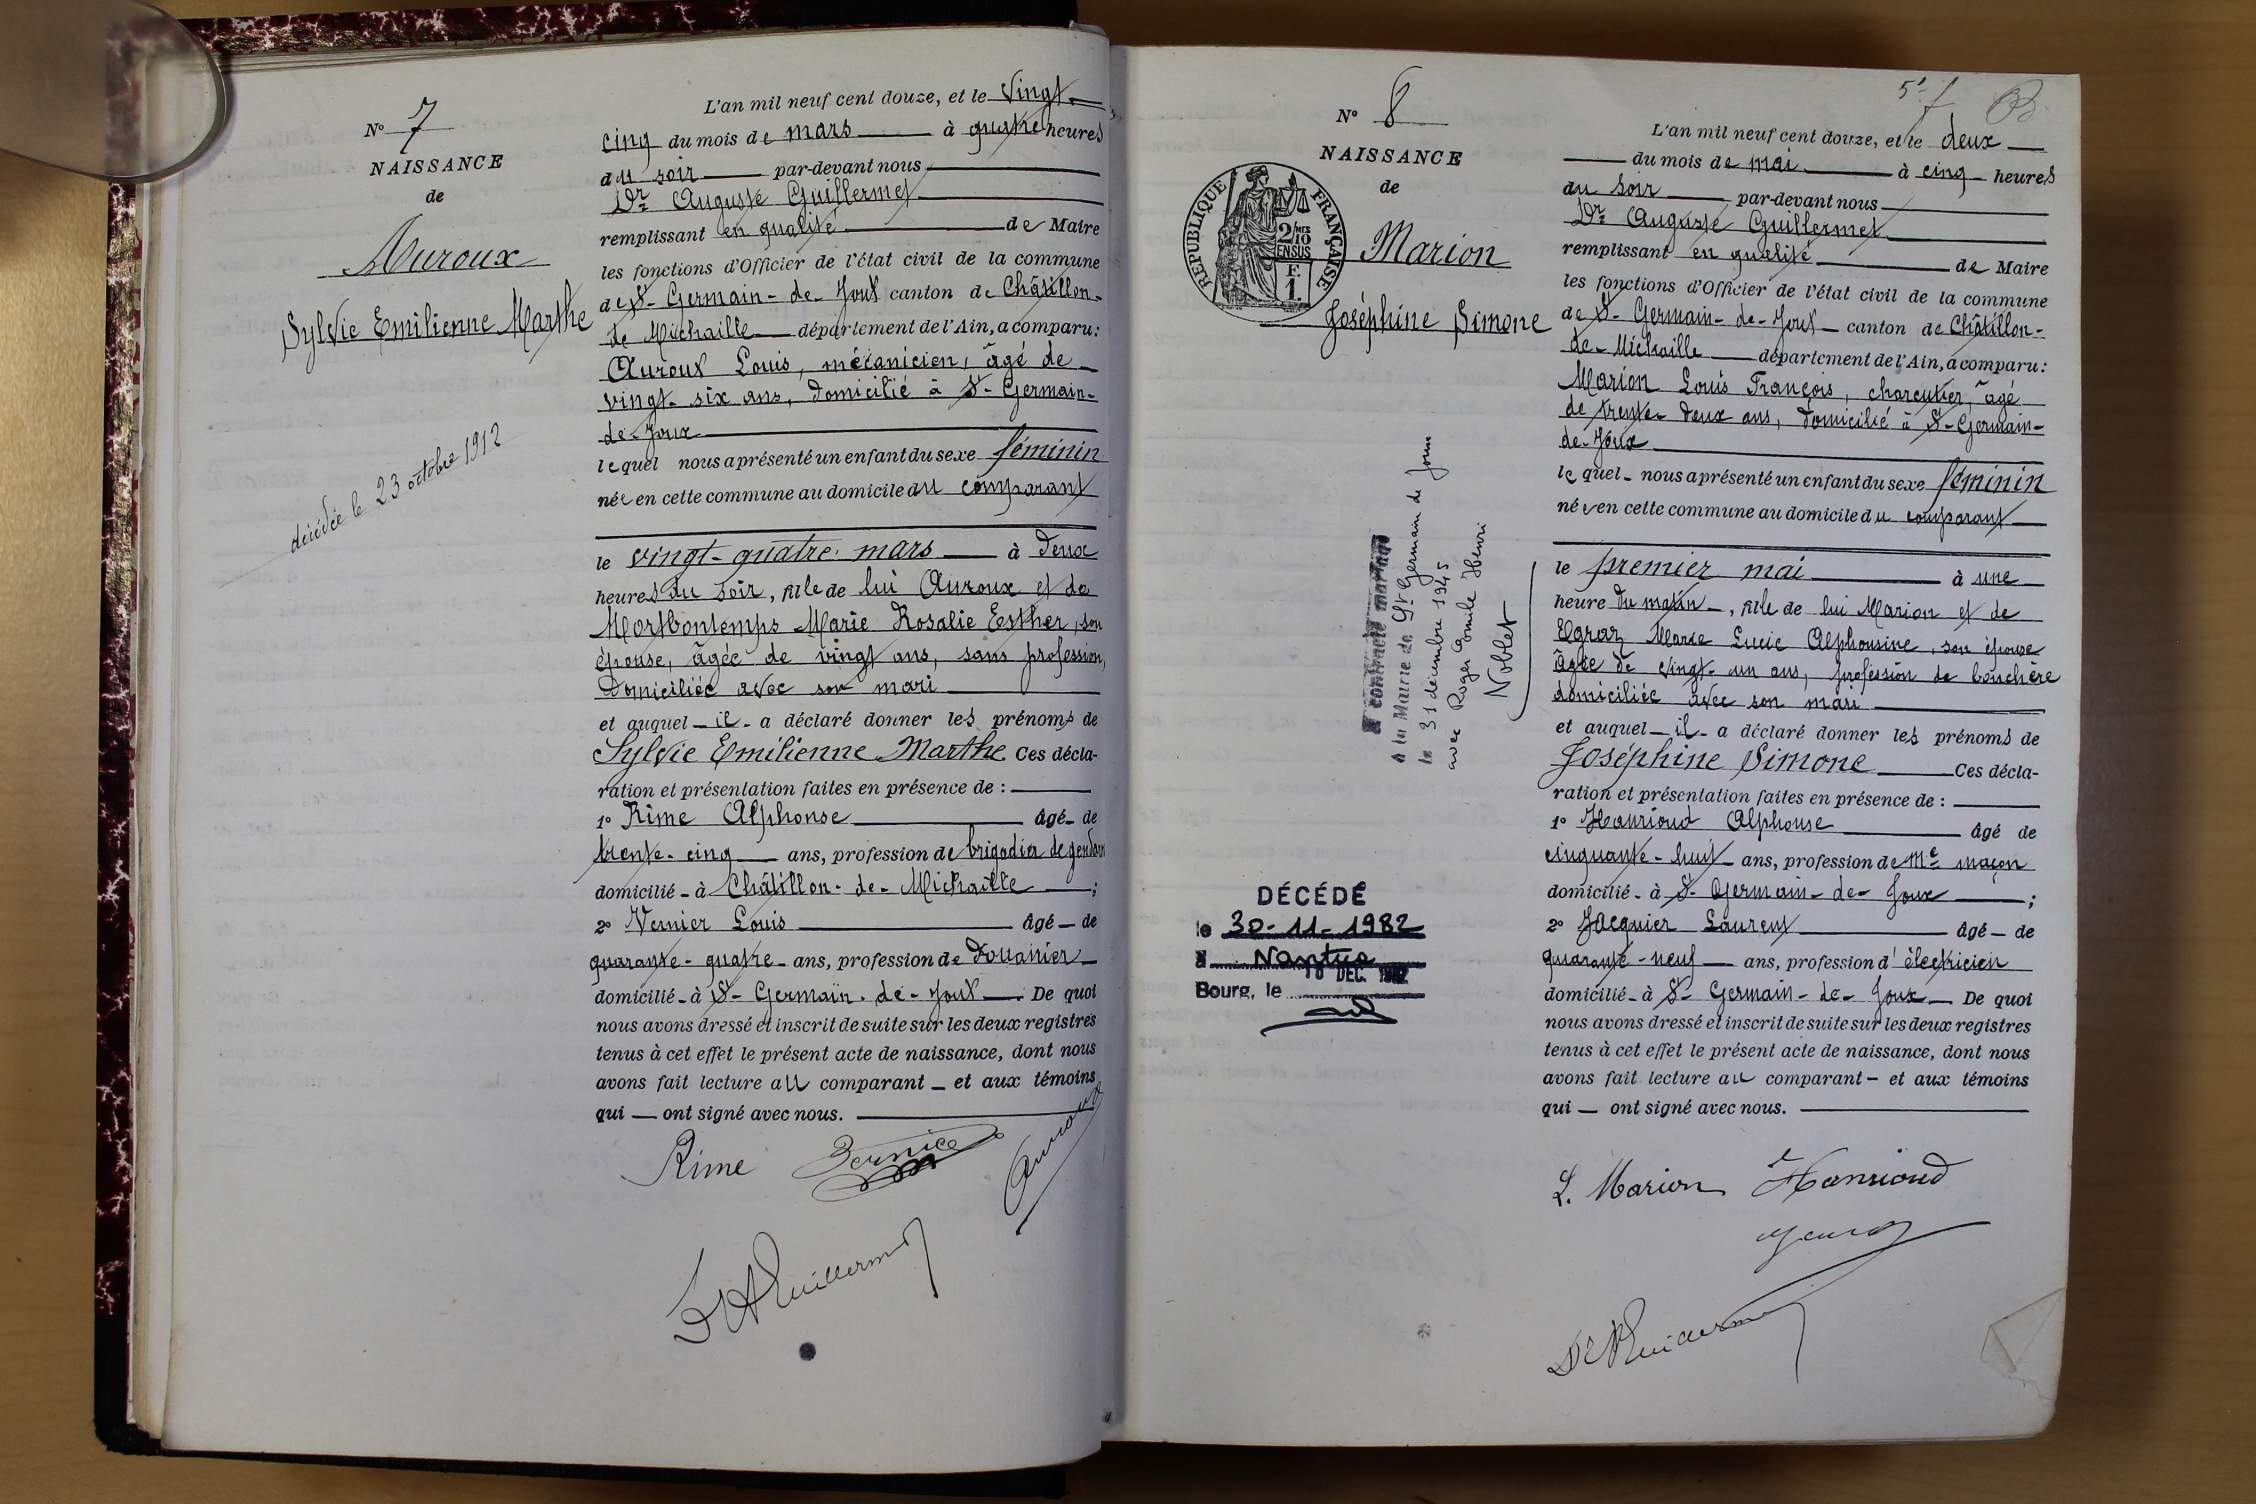 N° 7
NAISSANCE
de
Auroux
Sylvie Emilienne Marthe
décédée le 23 octobre 1912
L'an mil neuf cent douze, et le vingt-
cinq du mois de mars à quatre heures
du soir par-devant nous
Dr Auguste Guillermet
remplissant en qualité de Maire
les fonctions d'Officier de l'état civil de la commune
de St-Germain-de-Joux canton de Châtillon-
de Michaille département de l'Ain, a comparu:
Auroux Louis, mécanicien, âgé de
vingt-six ans, domicilié à St-Germain-
de-Joux
lequel nous a présenté un enfant du sexe féminin
née en cette commune au domicile du comparant
le vingt-quatre mars à deux
heures du soir, fille de lui Auroux et de
Mortbontemps Marie Rosalie Esther, son
épouse, âgée de vingt ans, sans profession,
domiciliée avec son mari
et auquel il a déclaré donner les prénoms de
Sylvie Emilienne Marthe Ces décla-
ration et présentation faites en présence de :
1° Rime Alphonse âgé de
trente-cinq ans, profession de brigadier de gendarm
domicilié à Châtillon-de-Michaille ;
2° Vernier Louis âgé de
quarante-quatre ans, profession de Douanier
domicilié à St-Germain-de-Joux De quoi
nous avons dressé et inscrit de suite sur les deux registres
tenus à cet effet le présent acte de naissance, dont nous
avons fait lecture au comparant et aux témoins
qui ont signé avec nous.
Rime
Auroux
Dr A Guillermet
5e f
N° 8
NAISSANCE
de
RÉPUBLIQUE FRANÇAISE
2/10
EN SUS
F.
1.
Marion
Joséphine Simone
a contracté mariage
à la Mairie de St Germain de Joux
le 31 décembre 1945
avec Roger Emile Henri
Noblet
DÉCÉDÉ
le 30-11-1982
à Nantua
Bourg, le 10 DEC. 1982
L'an mil neuf cent douze, et le deux
du mois de mai à cinq heures
du soir par-devant nous
Dr Auguste Guillermet
remplissant en qualité de Maire
les fonctions d'Officier de l'état civil de la commune
de St-Germain-de-Joux canton de Châtillon-
de-Michaille département de l'Ain, a comparu:
Marion Louis François, charcutier, âgé
de trente-deux ans, domicilié à St-Germain-
de-Joux
lequel nous a présenté un enfant du sexe féminin
née en cette commune au domicile du comparant
le premier mai à une
heure du matin, fille de lui Marion et de
Egraz Marie Lucie Alphonsine, son épouse
âgée de vingt-un ans, profession de bouchère
domiciliée avec son mari
et auquel il a déclaré donner les prénoms de
Joséphine Simone Ces décla-
ration et présentation faites en présence de :
1° Hanrioud Alphonse âgé de
cinquante-huit ans, profession de Me maçon
domicilié à St-Germain-de-Joux ;
2° Jacquier Laurent âgé de
quarante-neuf ans, profession d'électricien
domicilié à St-Germain-de-Joux De quoi
nous avons dressé et inscrit de suite sur les deux registres
tenus à cet effet le présent acte de naissance, dont nous
avons fait lecture au comparant et aux témoins
qui ont signé avec nous.
L. Marion Hanrioud
Dr Guillermet